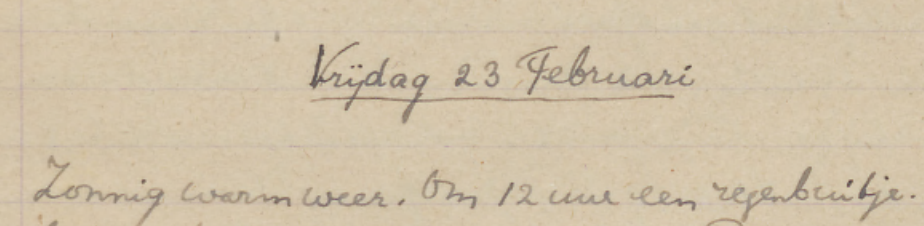 Vrijdag 23 Februari
Zonnig warm weer. Om 12 uur een regenbuitje.